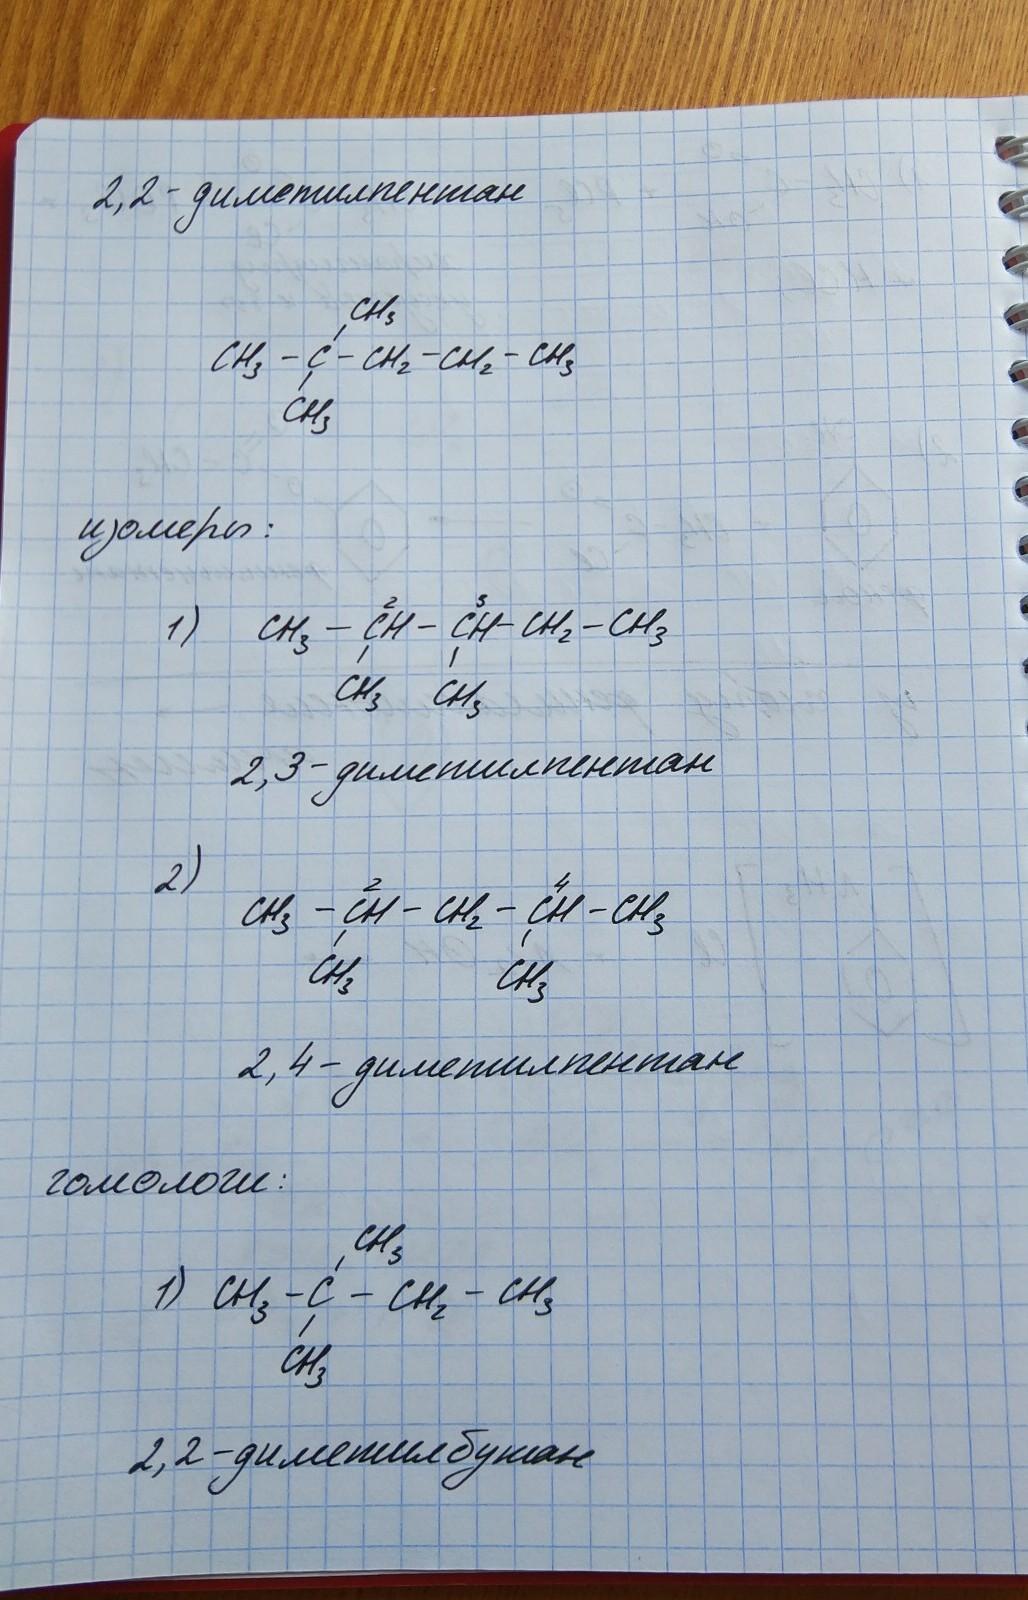 2,2-диметилпентан
CH3
CH3 - C - CH2 - CH2 - CH3
CH3
изомеры:
2 3
1) CH3 - CH - CH - CH2 - CH3
CH3 CH3
2,3-диметилпентан
2)
2 4
CH3 - CH - CH2 - CH - CH3
CH3 CH3
2,4-диметилпентан
гомологи:
CH3
1) CH3 - C - CH2 - CH3
CH3
2,2-диметилбутан